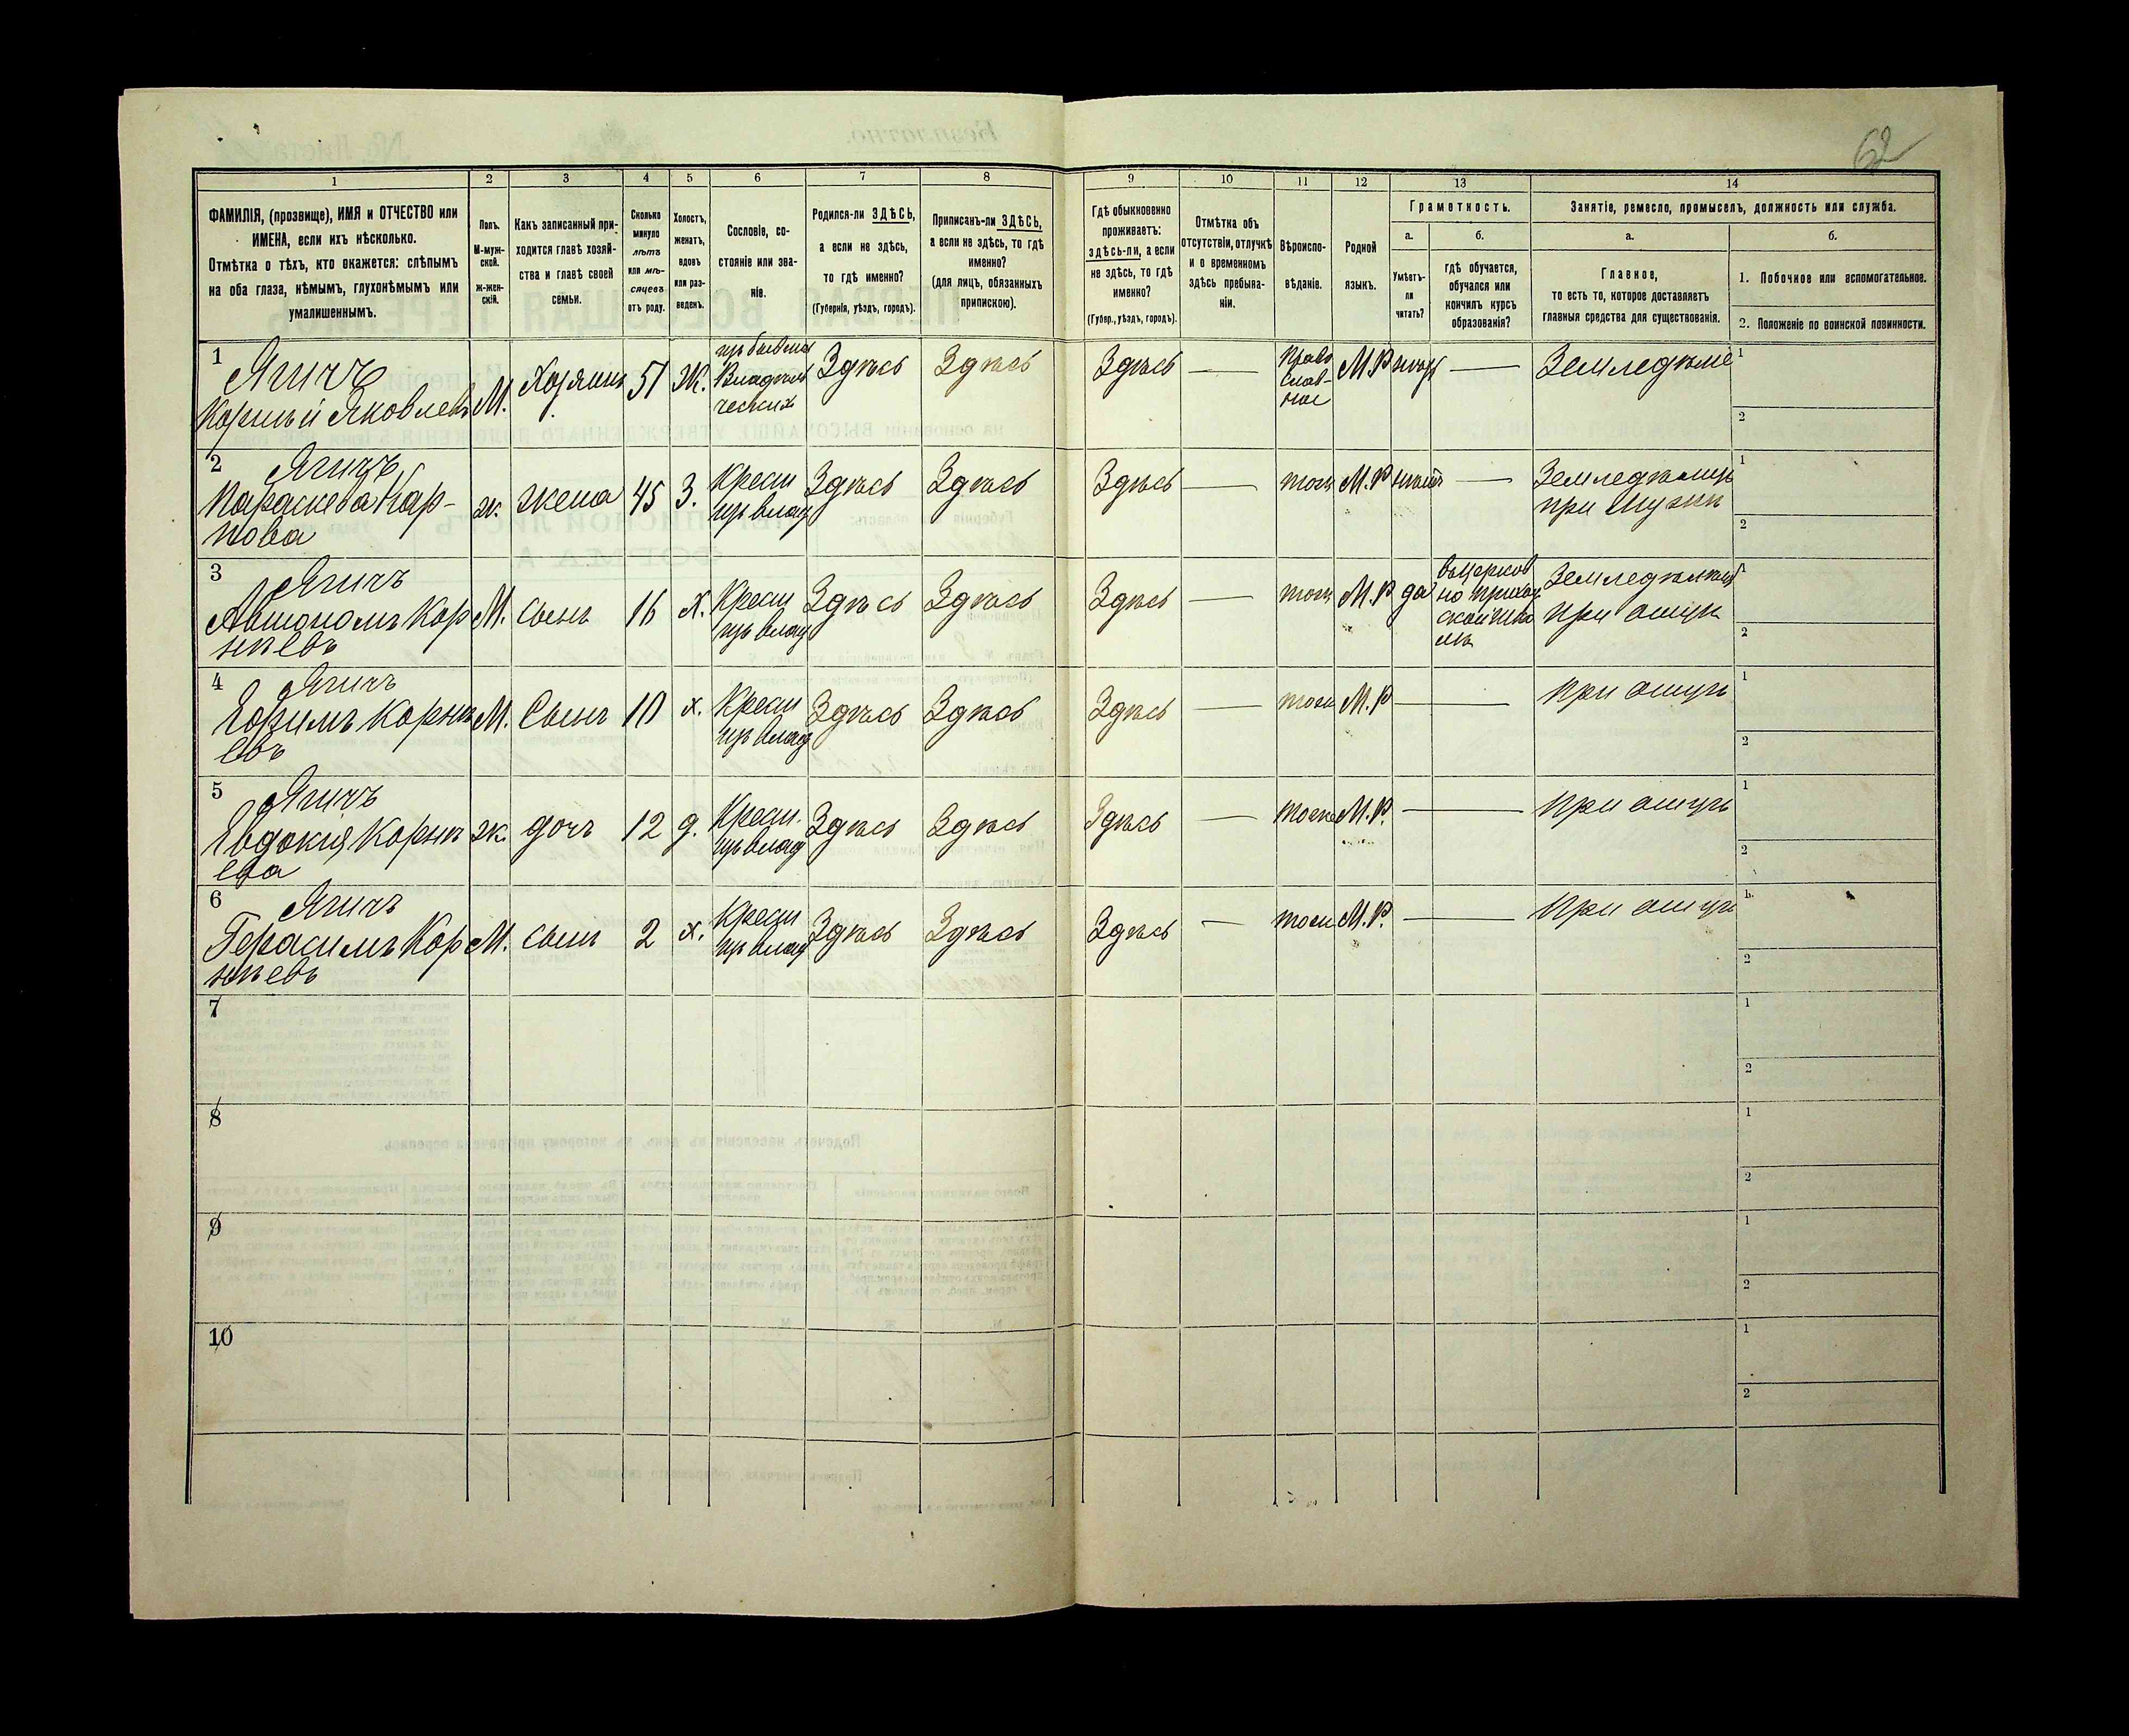 62
1 2 3 4 5 6 7 8 9 10 11 12 13 14
ФАМИЛІЯ, (прозвище), ИМЯ и ОТЧЕСТВО или
ИМЕНА, если ихъ нѣсколько.
Отмѣтка о тѣхъ, кто окажется: слѣпымъ
на оба глаза, нѣмымъ, глухонѣмымъ или
умалишеннымъ.
Полъ.
М-муж-
ской.
ж-жен-
скій.
Какъ записанный при-
ходится главѣ хозяй-
ства и главѣ своей
семьи.
Сколько
минуло
лѣтъ
или мѣ-
сяцевъ
отъ роду.
Холостъ,
женатъ,
вдовъ
или раз-
веденъ.
Сословіе, со-
стояніе или зва-
ніе.
Родился-ли ЗДѢСЬ,
а если не здѣсь,
то гдѣ именно?
(Губернія, уѣздъ, городъ).
Приписанъ-ли ЗДѢСЬ,
а если не здѣсь, то гдѣ
именно?
(для лицъ, обязанныхъ
припискою).
Гдѣ обыкновенно
проживаетъ:
здѣсь-ли, а если
не здѣсь, то гдѣ
именно?
(Губер., уѣздъ, городъ).
Отмѣтка объ
отсутствіи, отлучкѣ
и о временномъ
здѣсь пребыва-
ніи.
Вѣроиспо-
вѣданіе.
Родной
языкъ.
Грамотность.
а.
Умѣетъ-
ли
читать?
б.
гдѣ обучается,
обучался или
кончилъ курсъ
образованія?
Занятіе, ремесло, промыселъ, должность или служба.
а.
Главное,
то есть то, которое доставляетъ
главныя средства для существованія.
б.
1. Побочное или вспомогательное.
2. Положеніе по воинской повинности.
1 Ягичъ
Корнѣй Яковлевъ М. Хозяинъ 51 Ж. Здѣсь Здѣсь Здѣсь — М.Р — 1
Право
слав-
ное
2
2 Ягичъ
Параскева Кар-
пова ж. жена 45 З. Крест Здѣсь Здѣсь Здѣсь — М.Р — 1
из влад
2
3 Ягичъ
Автономъ Кор
нѣевъ М. сынъ 16 х. Крест Здѣсь Здѣсь Здѣсь — М.Р да 1
из влад
въ церков
но приход
ской шко
лѣ
при отцѣ
2
4 Ягичъ
Ефимъ Корнѣ
евъ М. Сынъ 10 х. Крест Здѣсь Здѣсь Здѣсь — М.Р — при отцѣ 1
из влад
2
5 Ягичъ
Евдокія Корнѣ
ева ж. дочь 12 д. Крест. Здѣсь Здѣсь Здѣсь — М.Р. — при отцѣ 1
из влад
2
6 Ягичъ
Герасимъ Кор
нѣевъ М. сынъ 2 х. Крест Здѣсь Здѣсь Здѣсь — М.Р. — При отцѣ 1.
из влад
2
7 1
2
8 1
2
9 1
2
10 1
2